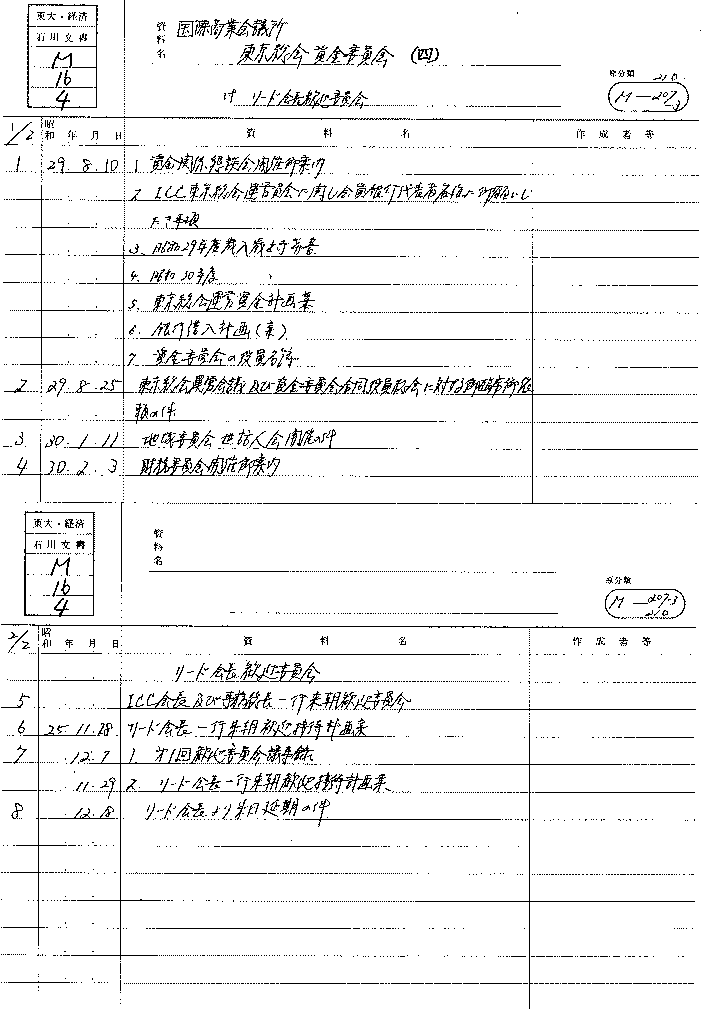 東大・経済
石川文書
M
16
4
資料名
国際商業会議所
東京総会 資金委員会 (四)
付 リード会長歓迎委員会
原分類 210
M—207-3
1/2 昭和 年 月 日 資料名 作成者等
1 29. 8. 10 1. 資金関係懇談会開催御案内
2. ICC東京総会運営員会に関し会員銀行代表者各位に御願いし
たき事項
3. 昭和29年度歳入歳出予算書
4. 昭和30年度 〃
5. 東京総会運営資金計画案
6. 銀行借入計画(案)
7. 資金委員会の役員名簿
2 29. 8. 25 東京総会運営会議及び資金委員会合同役員総会に対する御臨席御依
頼の件
3 30. 1. 11 地域委員会世話人会開催の件
4 30. 2. 3 財務委員会開催御案内
東大・経済
石川文書
M
16
4
資料名
原分類
M—207-3
210
2/2 昭和 年 月 日 資料名 作成者等
リード会長歓迎委員会
5 ICC会長及び事務総長一行来朝歓迎委員会
6 25. 11. 28 リード会長一行来朝歓迎接待計画案
7 12. 7 1. 第1回歓迎委員会議事録
11. 29 2. リード会長一行来朝歓迎接待計画案
8 12. 18 リード会長より来日延期の件